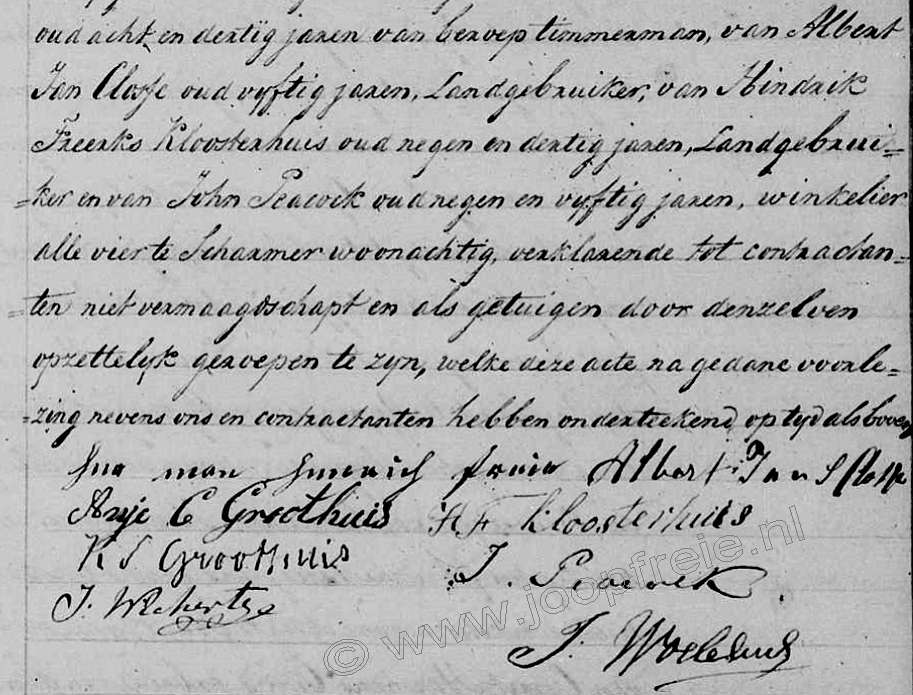 oud acht en dertig jaren van beroep timmerman, van Albert
Jan Closse oud vyftig jaren, Landgebruiker, van Hindrik
Freerks Kloosterhuis oud negen en dertig jaren, Landgebrui=
=ker en van John Peacock oud negen en vyftig jaren, winkelier
alle vier te Scharmer woonachtig, verklarende tot contractan=
=ten niet vermaagdschapt en als getuigen door denzelven
opzettelyk geroepen te zyn, welke deze acte na gedane voorle=
=zing nevens ons en contractanten hebben onderteekend, op tyd als boven
Albert Jans Closse
Anje C Groothuis H F Kloosterhuis
K S Groothuis
J. Peacock
J. Wicherts
© www.joopfreie.nl